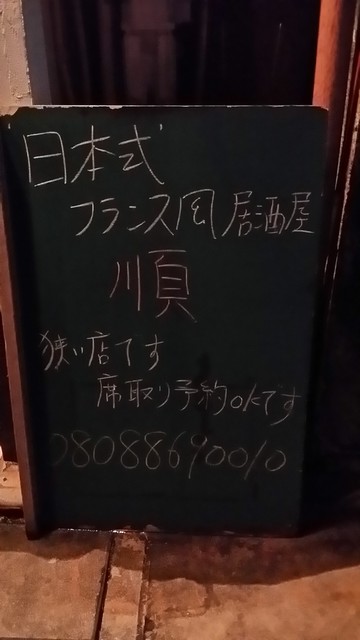 日本式
フランス風居酒屋
順
狭い店です
席取り予約OKです
08088690010